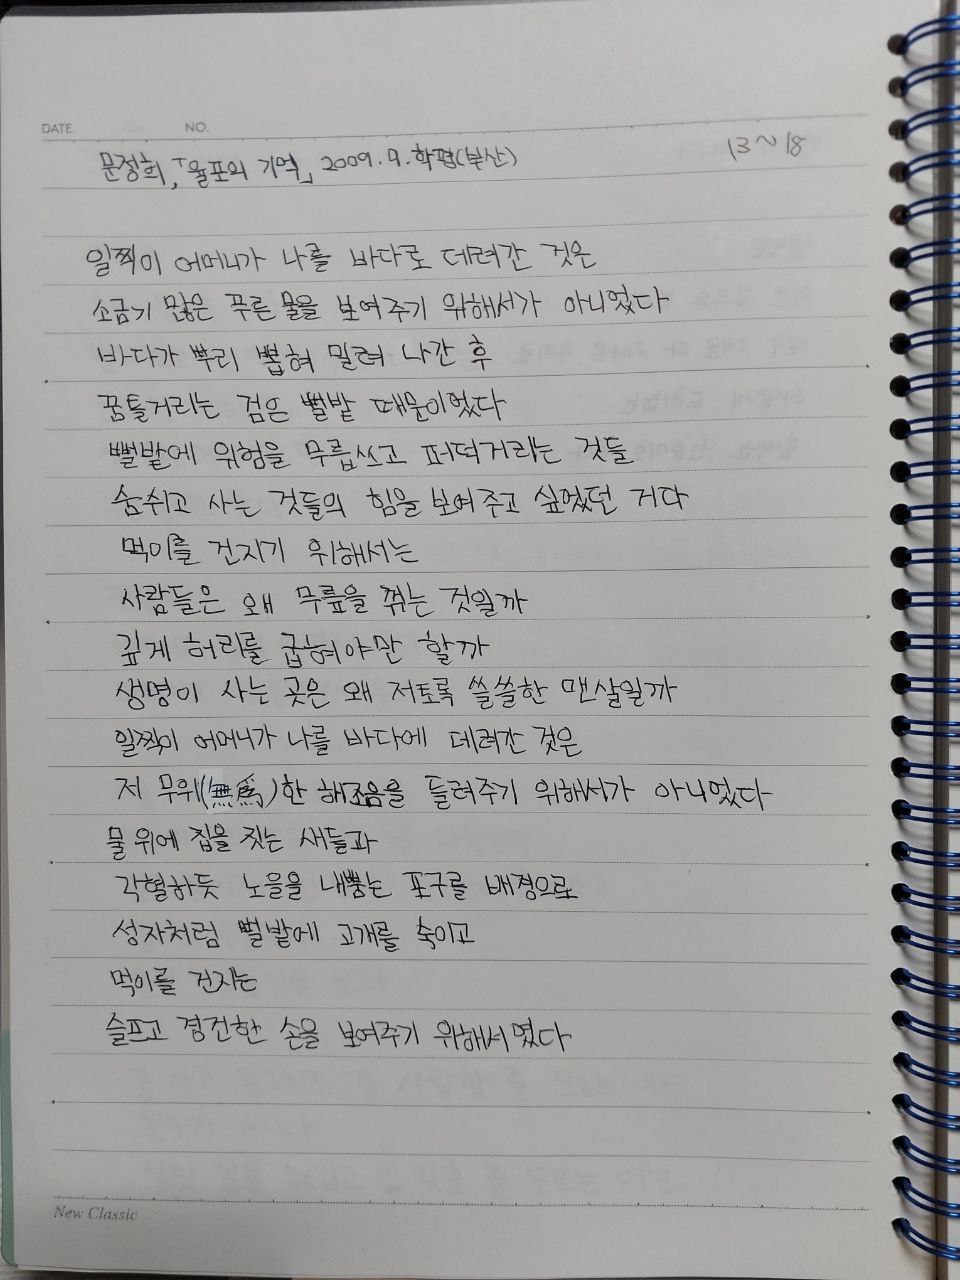 DATE. NO.
문정희,「율포의 기억」 2009.9.학평(부산) 13~18
일찍이 어머니가 나를 바다로 데려간 것은
소금기 많은 푸른 물을 보여주기 위해서가 아니었다
바다가 뿌리 뽑혀 밀려 나간 후
꿈틀거리는 검은 뻘밭 때문이었다
뻘밭에 위험을 무릅쓰고 퍼덕거리는 것들
숨쉬고 사는 것들의 힘을 보여주고 싶었던 거다
먹이를 건지기 위해서는
사람들은 왜 무릎을 꺾는 것일까
깊게 허리를 굽혀야만 할까
생명이 사는 곳은 왜 저토록 쓸쓸한 맨살일까
일찍이 어머니가 나를 바다에 데려간 것은
저 무위(無爲)한 해조음을 들려주기 위해서가 아니었다
물 위에 집을 짓는 새들과
각혈하듯 노을을 내뿜는 포구를 배경으로
성자처럼 뻘밭에 고개를 숙이고
먹이를 건지는
슬프고 경건한 손을 보여주기 위해서였다
New Classic